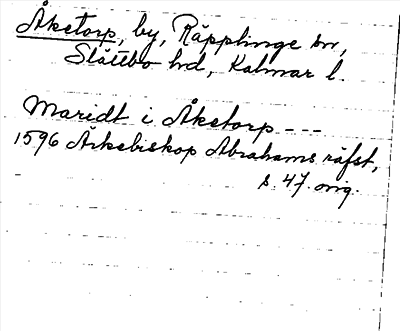 Åketorp, by, Räpplinge sn,
Slättbo hd, Kalmar l.
Maridt i Åketorp ---
1596 Ärkebiskop Abrahams räfst,
s. 47. orig.